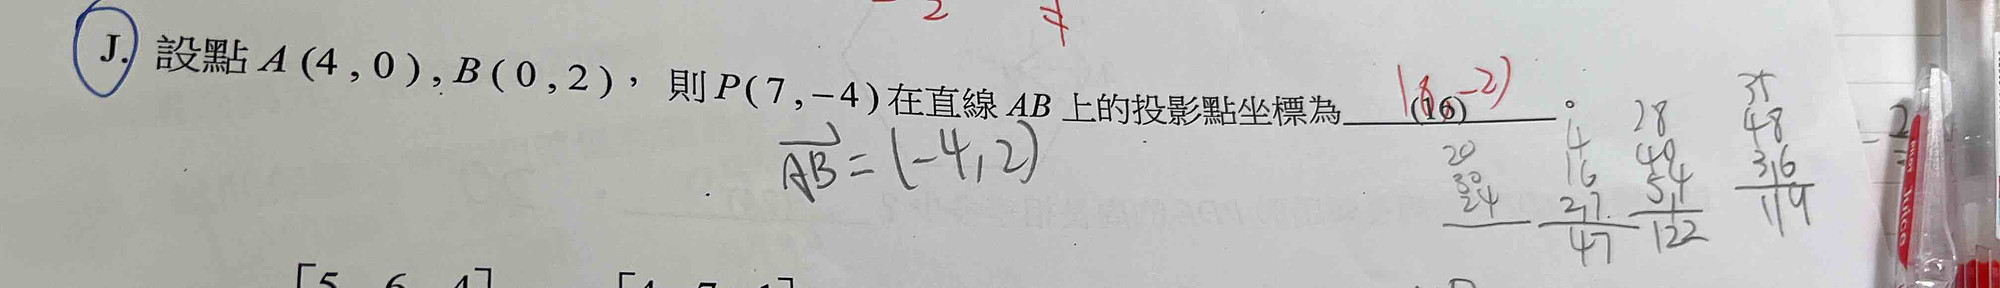 2
J. 設點 A (4 , 0) , B ( 0 , 2 ) , 則 P( 7 , −4 ) 在直線 AB 上的投影點坐標為 (16) 。
(8, -2)
AB = (-4, 2)
20
30
24
4
16
27
47
28
40
54
122
35
48
36
119
2